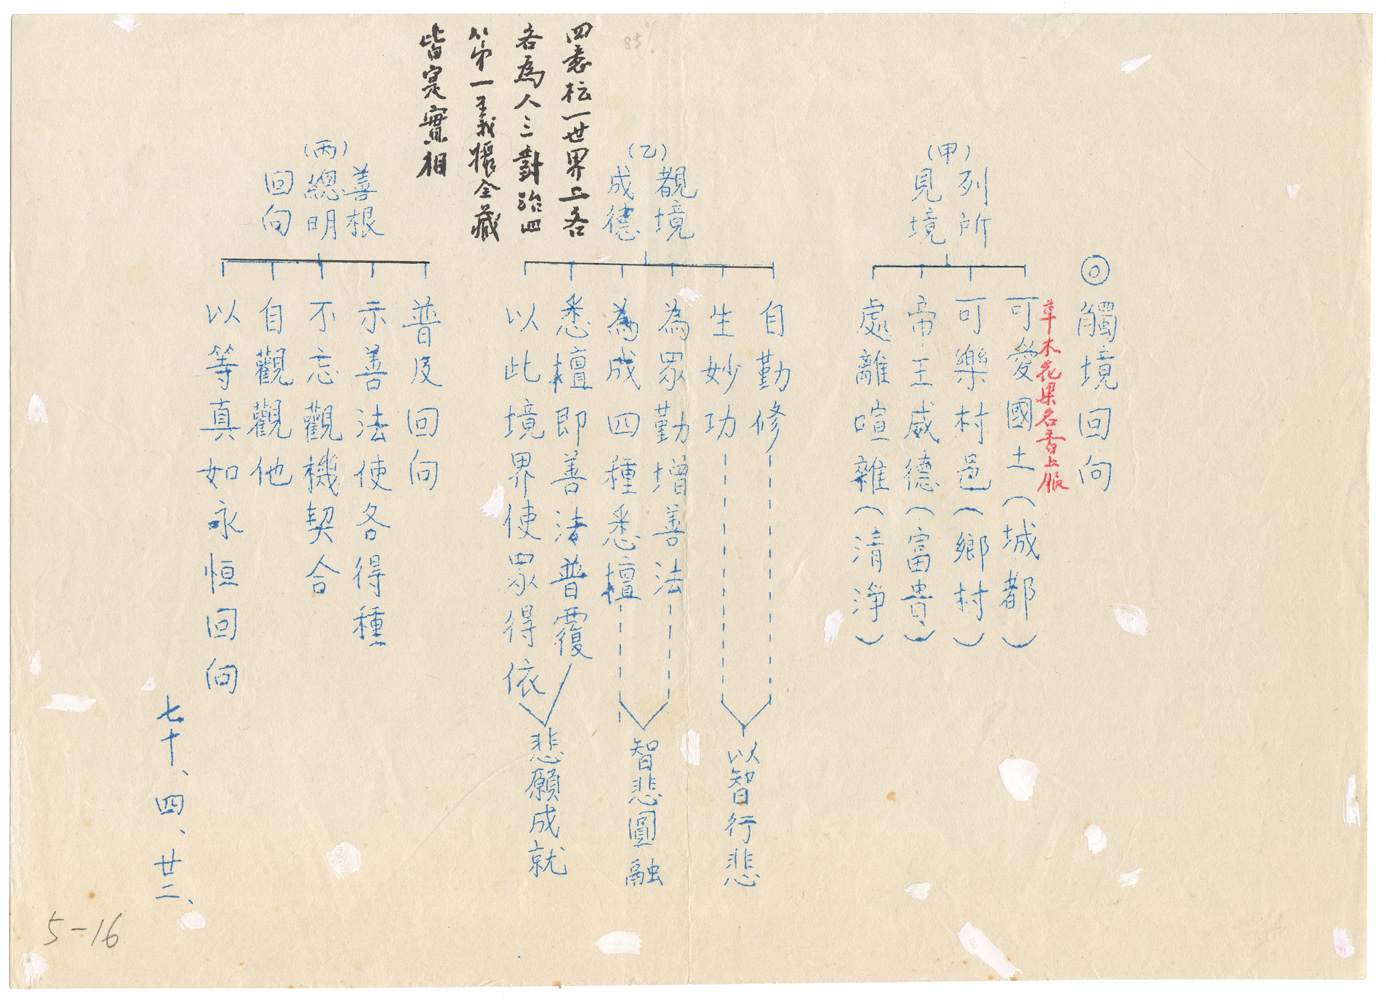 ◎觸境回向
(甲)
列所
見境
草木花果名香上服
可愛國土(城都)
可樂村邑(鄉村)
帝王威德(富貴)
處離喧雜(清淨)
(乙)
覩境
成德
自勤修
生妙功
以智行悲
為眾勤增善法
為成四種悉檀
智悲圓融
悉檀即善法普覆
以此境界使眾得依
悲願成就
四悉枟一世界二各
各為人三對治四
第一義攝全藏
皆是實相
(丙)
善根
總明
回向
普及回向
示善法使各得種
不忘觀機契合
自觀觀他
以等真如永恒回向
七十、四、廿二、
5-16
85%